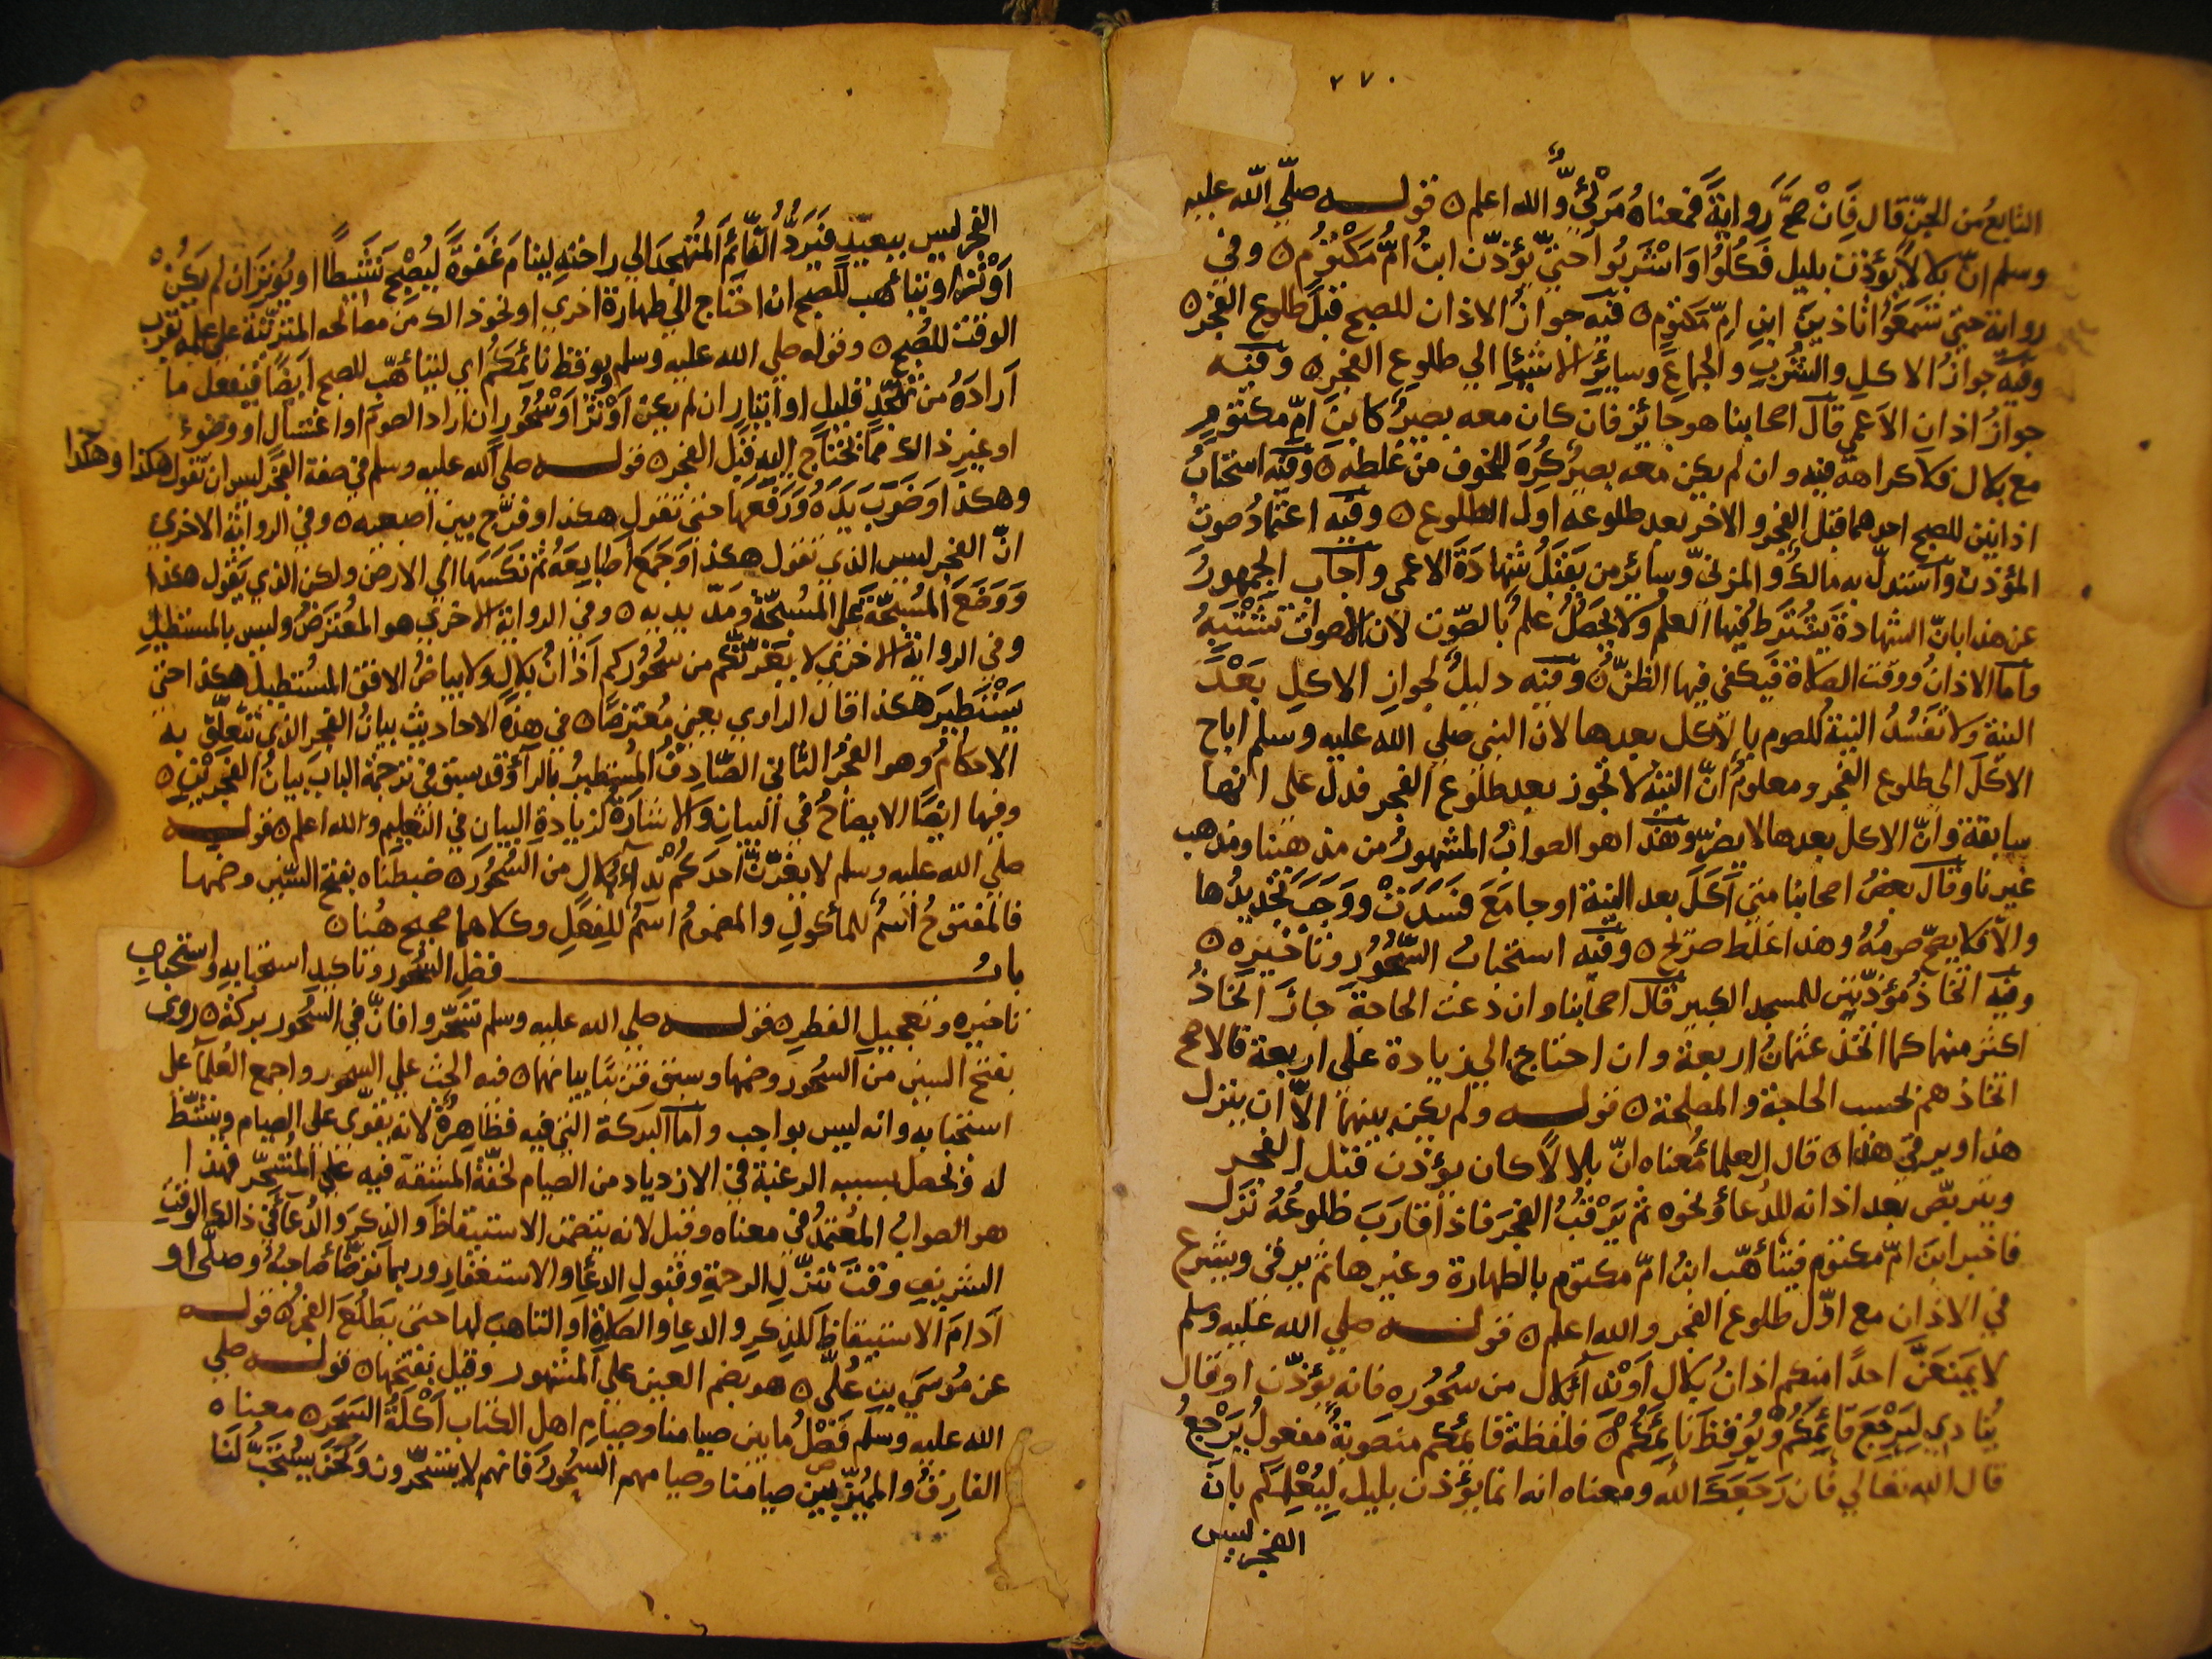 ٢٧٠
التابع من الجنّ قال فَاِنْ صحَّ رواية فمعناه مَرْئيٌّ والله اعلم ه قوله صلّي اللّه عليه
وسلم انّ بلالًا يؤذن بليل فَكُلُوا وَاشْرَبُوا حتيّ يؤذّن ابنُ امُّ مَكْتُوُم ه وفي
رواية حتي تَسْمَعُوا تاذينَ ابنِ امّ مَكتوم ه فيه جوازُ الاذان للصبح قبل طلوع الفجر ه
وفيه جوازُ الاكل والشُّربِ والجماعِ وسائرِ الاشيَاِ الي طلوع الفجر ه وفيه
جوازُ اذان الاَعمي قال اصحابنا هو جائز فان كان معه بصيرٌ كابن امّ مكتومٍ
مع بلال فلا كراهة فيه وان لم يكن معه بصيرٌ كُرِهَ للخوف من غلطه ه وفيه استحبابُ
اذانين للصبح احدهما قبل الفجر والاخر بعد طلوعه اول الطلوع ه وفيه اعتمادُ صوت
المؤذن واستدلّ به مالكٌ والمزنيّ وسائرُ من يَقْبَلُ شهادَةَ الاعمي واجاب الجمهورُ
عن هذا بانّ الشهادة يُشترط فيها العلم ولا يحصلُ علمٌ بالصّوت لان الاصوات تشتبهُ
واما الاذانُ ووقت الصلاة فيكفي فيها الظنُّ ه وفيه دليلٌ لجواز الاكلِ بَعْدَ
النية ولا تفسُدُ النيةُ للصوم بالاكل بعدها لان النبي صلي الله عليه وسلم اباح
الاكلَ الي طلوع الفجر ومعلومٌ انّ النيةَ لا تجوز بعد طلوع الفجر فدل علي انها
سابقة وانّ الاكل بعدها لا يضرّ وهذا هو الصوابُ المشهورُ من مذهبنا ومذهب
غيرنا وقال بعضُ اصحابنا متي اَكَلَ بعد النية اوجامَعَ فَسَدَتْ ووَجَبَ تجديدُها
والّا فلا يصحّ صومُهُ وهذا غلط صريح ه وفيه استحبابُ السُّحُورِ وتاخيره ه
وفيه اتخاذُ مُؤذّنين للمسجد الكبير قال اصحابنا وان دعت الحاجة جاز اتخاذُ
اكثر منهما كما اتخذ عثمانُ اربعة وان احتاج الي زيادة علي اربعة فالاصح
اتخاذهم بحسب الحاجة والمصلحة ه قوله ولم يكن بينهما الاّ ان ينزل
هذا ويرقي هذا ه قال العلماُ معناه انّ بلالًا كان يؤذن قبل الفجر
ويتربّص بعد اذانه للدُعاِ ونحوه ثم يَرْقُبُ الفجرَ فاذا قارَبَ طلوعُهُ نَزَل
فاخبر ابنَ امّ مكتوم فيتأهّب ابنُ امّ مكتوم بالطهارة وغيرها ثم يرقي ويشرع
في الاذان مع اوّل طلوع الفجر والله اعلم ه قوله صلي الله عليه وسلم
لا يَمنَعَنَّ احدًا منكم اذانُ بلالٍ اَوْ نداُ بلال من سحُوره فانه يؤذّن او قال
يُنادي لِيَرْجعَ قائمَكُمْ ويُوقظَ نائمَكُم ه فلفظةُ قائمكم منصوبةٌ مفعولُ يَرْجعُ
قال الله تعالي فان رَجَعَكَ اللّه ومعناه انه انما يؤذن بليلٍ لِيُعْلِمَكُم بانّ
الفجر ليس
الفجر ليس ببعيد فيَرُدَّ القائمَ المُتهجدَ الي راحته لينام غَفْوةً ليُصْبِح نَشيطًا او يُوْتِرَ ان لم يكُنْ
اَوْتَرَ او يتاهب للصبح ان احتاج الي طهارة اخري او نحو ذالك من مصالحه المترتّبة علي علمه بقرب
الوقت للصُبح ه وقوله صلي الله عليه وسلم ويوقظ نائمَكُم اي ليتأهّب للصبح ايضًا فيفعل ما
اَرادَهُ من تهجّدٍ قليلٍ او ايتارٍ ان لم يكن اَوْتَرَ اَوْ سُحُورٍ ان اراد الصومَ او اغتسال او وضوءٍ
او غير ذالك مما تحتاج اليه قبل الفجر ه قوله صلي الله عليه وسلم في صفة الفجر ليس ان تقول هكذا وهكذا
وهكذا وصَوّبَ يَدَهُ ورَفَعَها حتي تقول هكذا وفرّج بين اصبعيه ه وفي الرواية الاخري
انّ الفجر ليس الذي تقول هكذا وجَمَعَ اصابِعَهُ ثم نَكَسَها الي الارض ولكن الذي يقول هكذا
وَوَضَعَ المُسَبِّحَةَ عَلَي المُسَبِّحَةِ ومَدّ يديه ه وفي الرواية الاخري هو المُعترَضُ وليس بالمستطيلِ
وفي الرواية الاخري لا يَغُرّنّكم من سحُوركم اَذانُ بلالٍ ولا بياضُ الافق المُستطيل هكذا حتي
يَسْتَطيرَ هكذا قال الراوي يعني مُعترضًا ه في هذه الاحاديث بيانُ الفجر الذي تتعلّق به
الاحكامُ وهو الفجرُ الثاني الصّادقُ المُستطيرُ بالرا وقد سبق في ترجمة الباب بيانُ الفجرَيْنِ ه
وفيها ايضًا الايضاحُ في البيان والاشارةُ لزيادة البيان في التعليم والله اعلم ه قوله
صلي الله عليه وسلم لا يغُرّنّ احدَكم نداُ بلالٍ من السُّحُور ه ضبطناه بفتح السّين وضمها
فالمفتوحُ اسمٌ للمأكولِ والمضمومُ اسمٌ للفعلِ وكلاهما صحيح هُنا ه
باب فضل السُّحُور وتاكيد استحبابه واستحباب
تاخيره وتعجيل الفطر ه قوله صلي الله عليه وسلم تسَحّروا فانّ في السُّحُور بركة ه روي
بفتح السين من السُّحُور وضمها وسبق قريبًا بيانها ه فيه الحثُ علي السحور واجمع العُلماُ علي
استحبابه وانه ليس بواجب واما البركة التي فيه فظاهِرةٌ لانه يقوّي علي الصيام وينشّط
له وتحصل بسببه الرغبة في الازدياد من الصيام لخفّة المشقة فيه علي المُتسَحّر فهذا
هو الصوابُ المُعتمدُ في معناه وقيل لانه يتضمن الاستيقاظَ والذكرَ والدُعاَ في ذالك الوقتِ
الشريفِ وقت تَنَزُّلِ الرحمةِ وقبولِ الدعاِ والاستغفارِ وربما توضّأ صاحبُهُ وصلّي او
اَدامَ الاستيقاظَ للذِكرِ والدعاِ والصلاةِ او التاهب لها حتي يَطلُعَ الفجرُ ه قوله
عن مُوسَي بن عُلَيٍّ ه هو بضم العين علي المشهور وقيل بفتحها ه قوله صلي
الله عليه وسلم فَصْلُ ما بين صيامنا وصيامِ اهل الكتاب اَكْلَةُ السَحَر ه معناه
الفارقُ والمُميّز بين صيامنا وصيامهم السحُورُ فانهم لا يتسَحّرون ونَحْنُ يُستحَبُّ لَنا